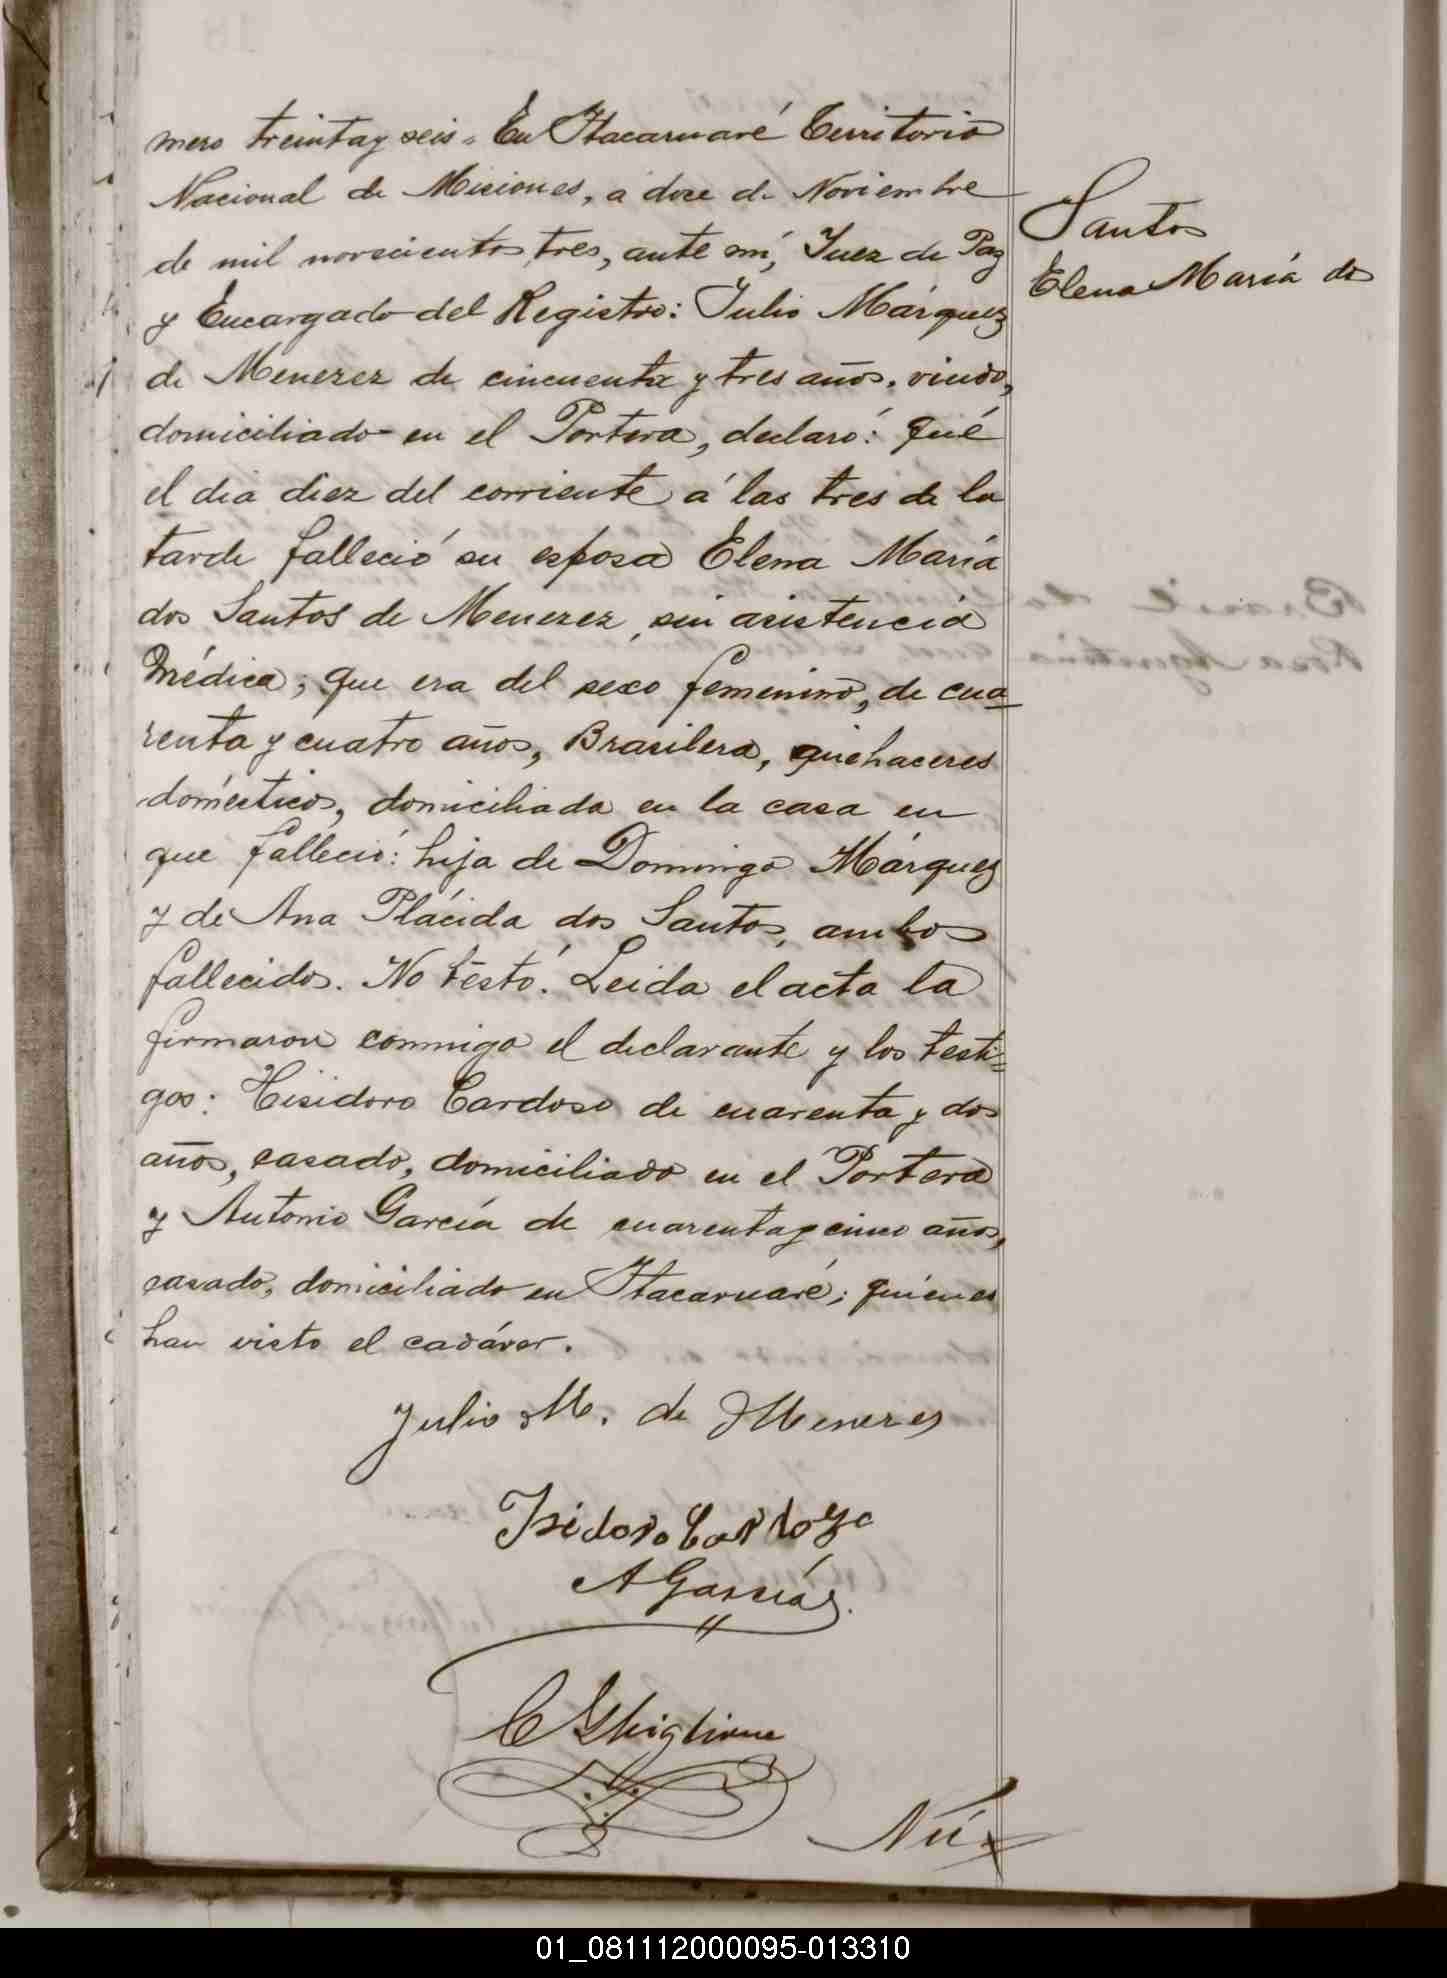 mero treinta y seis. En Itacaruaré Territorio
Nacional de Misiones, a doce de Noviembre
de mil novecientos tres, ante mí, Juez de Paz
y Encargado del Registro: Julio Márquez
de Menezez de cincuenta y tres años, viudo,
domiciliado en el Portera, declaró: Qué
el dia diez del corriente á las tres de la
tarde falleció su esposa Elena María
dos Santos de Menezez, sin asistencia
Médica; que era del sexo femenino, de cua
renta y cuatro años, Brasilera, quehaceres
domésticos, domiciliada en la casa en
que falleció: hija de Domingo Márquez
y de Ana Plácida dos Santos, ambos
fallecidos. No téstó. Leida el acta la
firmaron conmigo el declarante y los testi=
gos: Hisidoro Cardoso de cuarenta y dos
años, casado, domiciliado en el Portera
y Antonio García de cuarenta y cinco años,
casado, domiciliado en Itacaruaré; quienes
han visto el cadáver.
Julio M. de Menezes
Isidoro Cardozo
A García
C Ghiglione
Nú-
Santos
Elena María dos
01_081112000095-013310